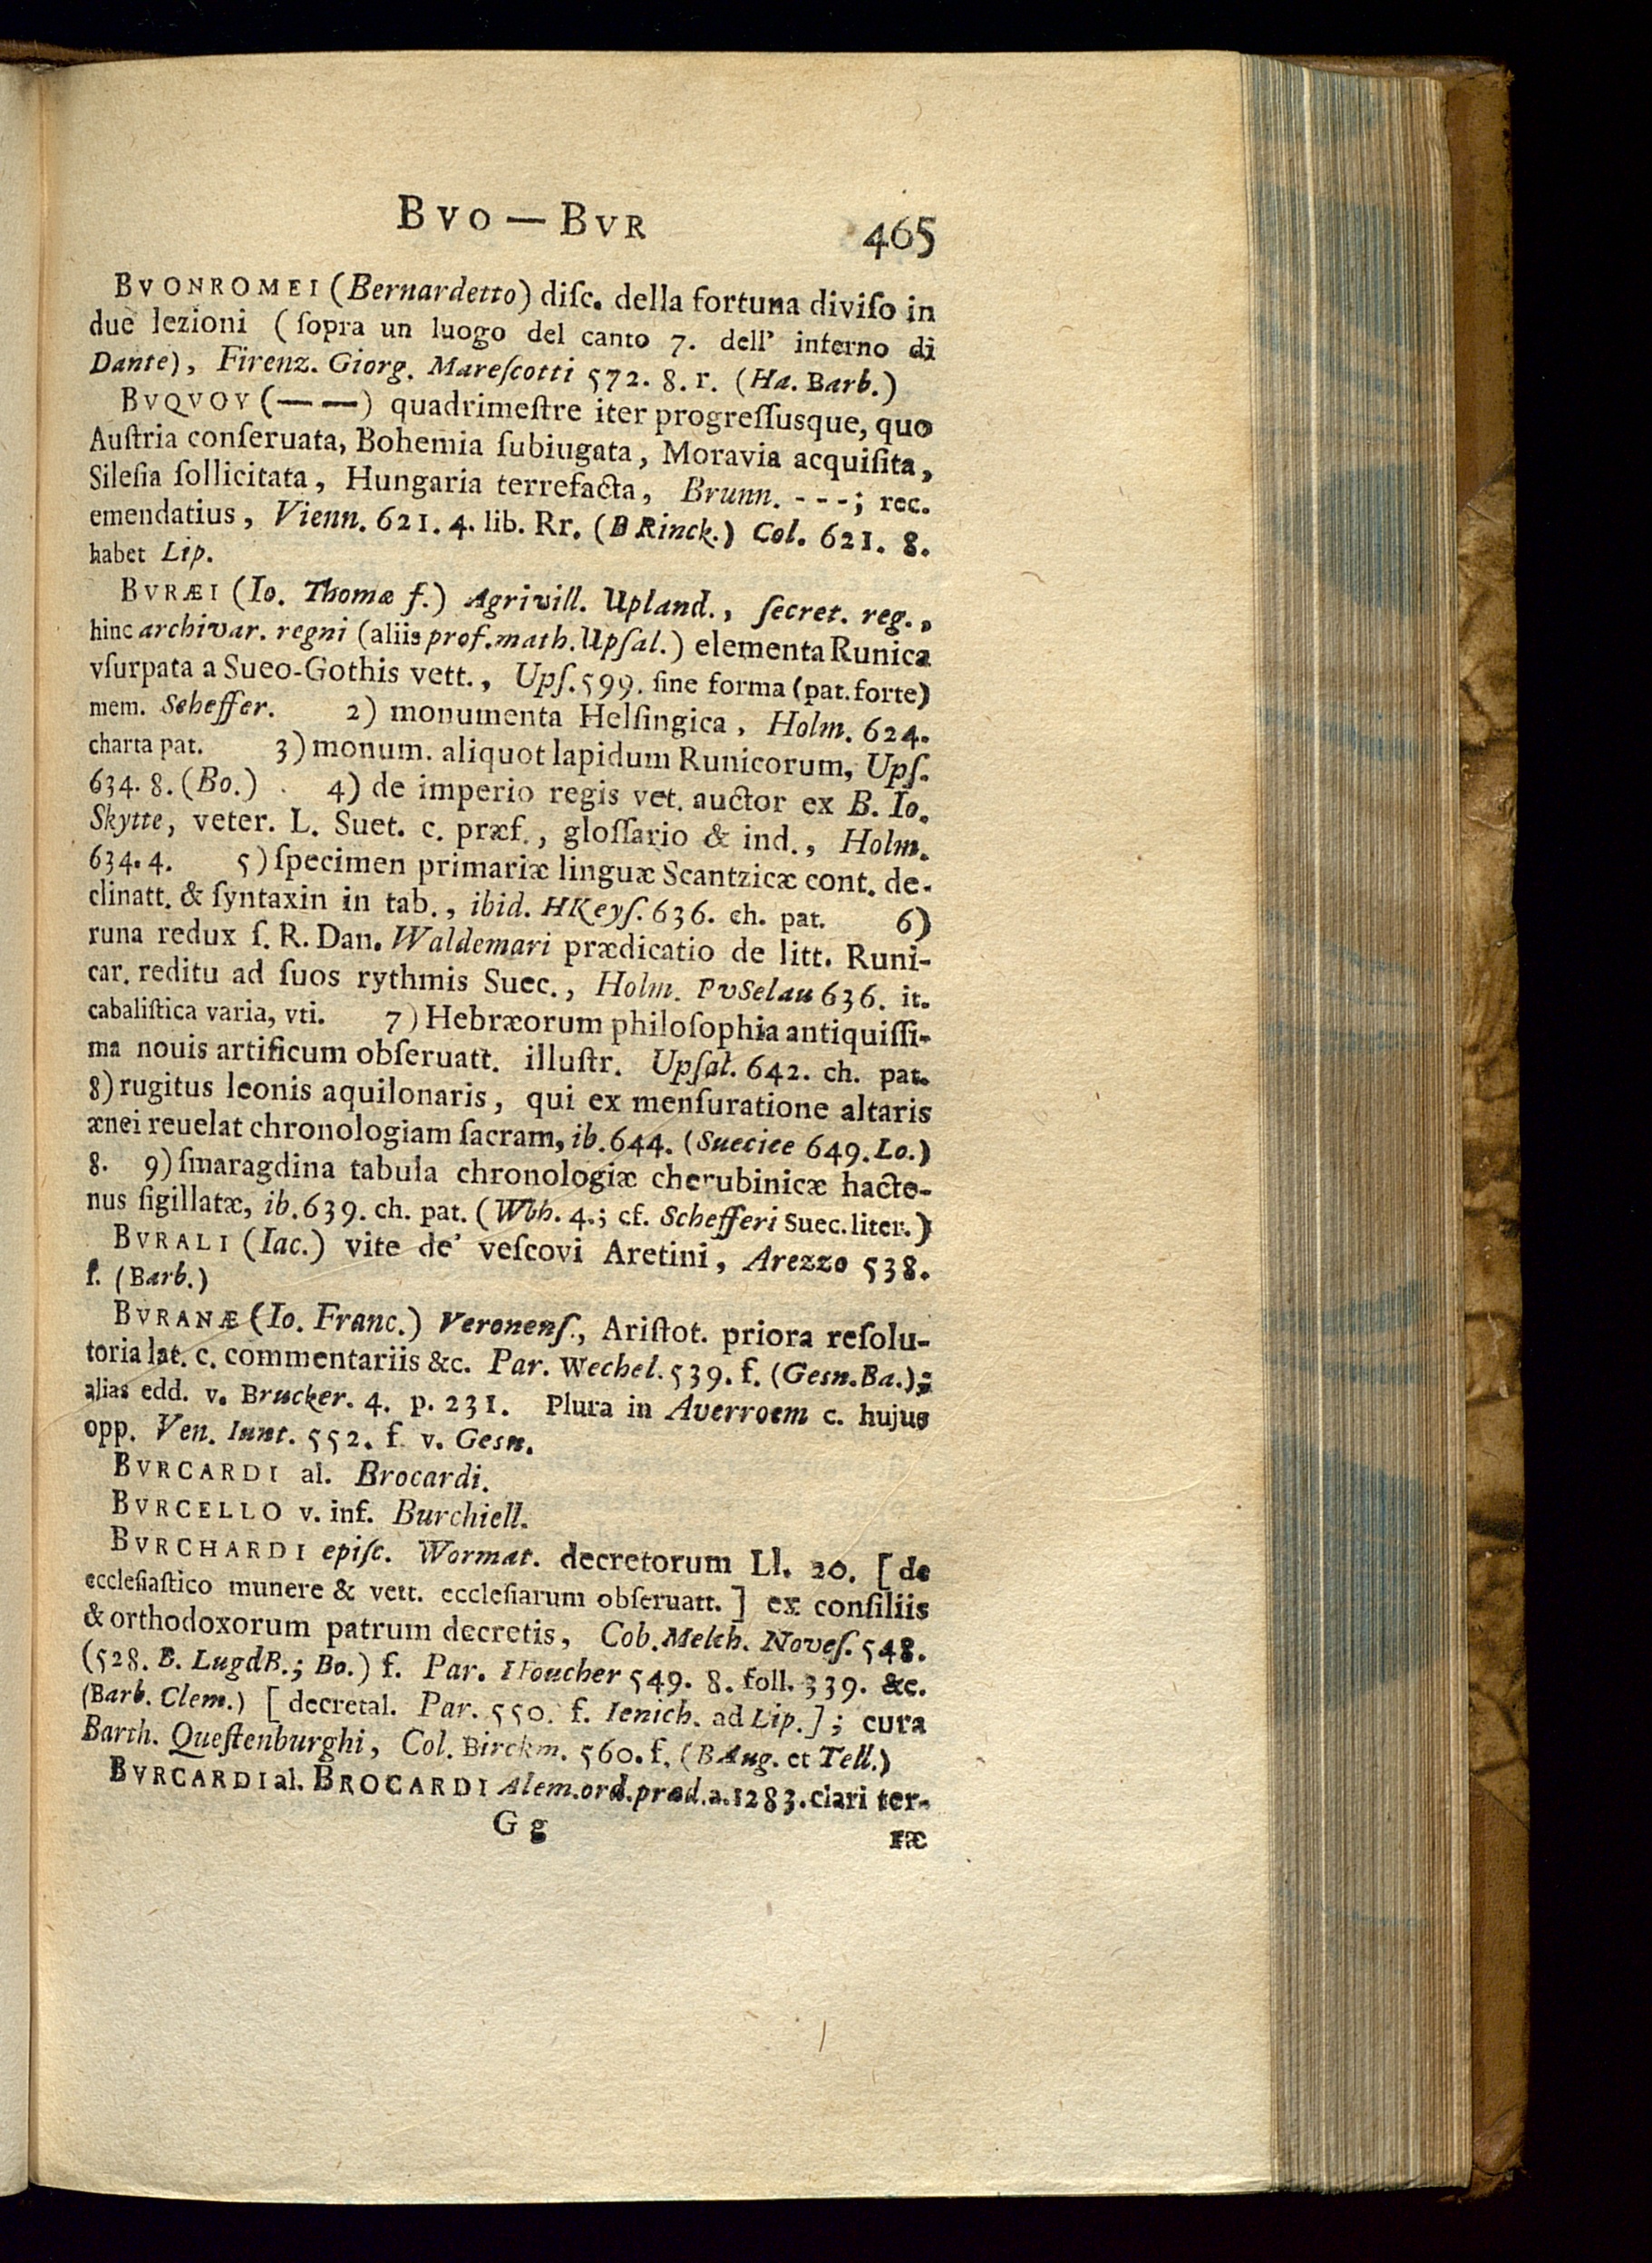 BVO — BVR 465
BVONROMEI (Bernardetto) diſc. della fortuna diviſo in
due lezioni (ſopra un luogo del canto 7. dell' inferno di
Dante), Firenz. Giorg. Mareſcotti 572. 8. r. (Ha. Barb.)
BVQVOY (— —) quadrimeſtre iter progreſſusque, quo
Auſtria conſeruata, Bohemia ſubiugata, Moravia acquiſita,
Sileſia ſollicitata, Hungaria terrefacta, Brunn. - - -; rec.
emendatius, Vienn. 621. 4. lib. Rr. (B Rinck.) Col. 621. 8.
habet Lip.
BVRÆI (Io. Thomæ f.) Agrivill. Upland., ſecret. reg.,
hinc archivar. regni (aliis prof. math. Upſal.) elementa Runica
vſurpata a Sueo-Gothis vett., Upſ. 599. ſine forma (pat. forte)
mem. Scheffer. 2) monumenta Helſingica, Holm. 624.
charta pat. 3) monum. aliquot lapidum Runicorum, Upſ.
634. 8. (Bo.) 4) de imperio regis vet. auctor ex B. Io.
Skytte, veter. L. Suet. c. præf., gloſſario & ind., Holm.
634. 4. 5) ſpecimen primariæ linguæ Scantzicæ cont. de-
clinatt. & ſyntaxin in tab., ibid. HKeyſ. 636. ch. pat. 6)
runa redux ſ. R. Dan. Waldemari prædicatio de litt. Runi-
car. reditu ad ſuos rythmis Suec., Holm. PvSelau 636. it.
cabaliſtica varia, vti. 7) Hebræorum philoſophia antiquiſſi-
ma nouis artificum obſeruatt. illuſtr. Upſal. 642. ch. pat.
8) rugitus leonis aquilonaris, qui ex menſuratione altaris
ænei reuelat chronologiam ſacram, ib. 644. (Sueciee 649. Lo.)
8. 9) ſmaragdina tabula chronologiæ cherubinicæ hacte-
nus ſigillatæ, ib. 639. ch. pat. (Wbh. 4.; cf. Schefferi Suec. liter.)
BVRALI (Iac.) vite de' veſcovi Aretini, Arezzo 538.
f. (Barb.)
BVRANÆ (Io. Franc.) Veronenſ., Ariſtot. priora reſolu-
toria lat. c. commentariis &c. Par. Wechel. 539. f. (Gesn. Ba.);
alias edd. v. Brucker. 4. p. 231. Plura in Averroem c. hujus
opp. Ven. Iunt. 552. f. v. Gesn.
BVRCARDI al. Brocardi.
BVRCELLO v. inf. Burchiell.
BVRCHARDI epiſc. Wormat. decretorum Ll. 20. [de
eccleſiaſtico munere & vett. eccleſiarum obſeruatt.] ex conſiliis
& orthodoxorum patrum decretis, Col. Melch. Noveſ. 548.
(528. B. LugdB.; Bo.) f. Par. IFoucher 549. 8. foll. 339. &c.
(Barb. Clem.) [decretal. Par. 550. f. Ienich. ad Lip.]; cura
Barth. Queſtenburghi, Col. Birckm. 560. f. (BAug. et Tell.)
BVRCARDI al. BROCARDI Alem. ord. præd. a. 1283. clari ter-
G g ræ